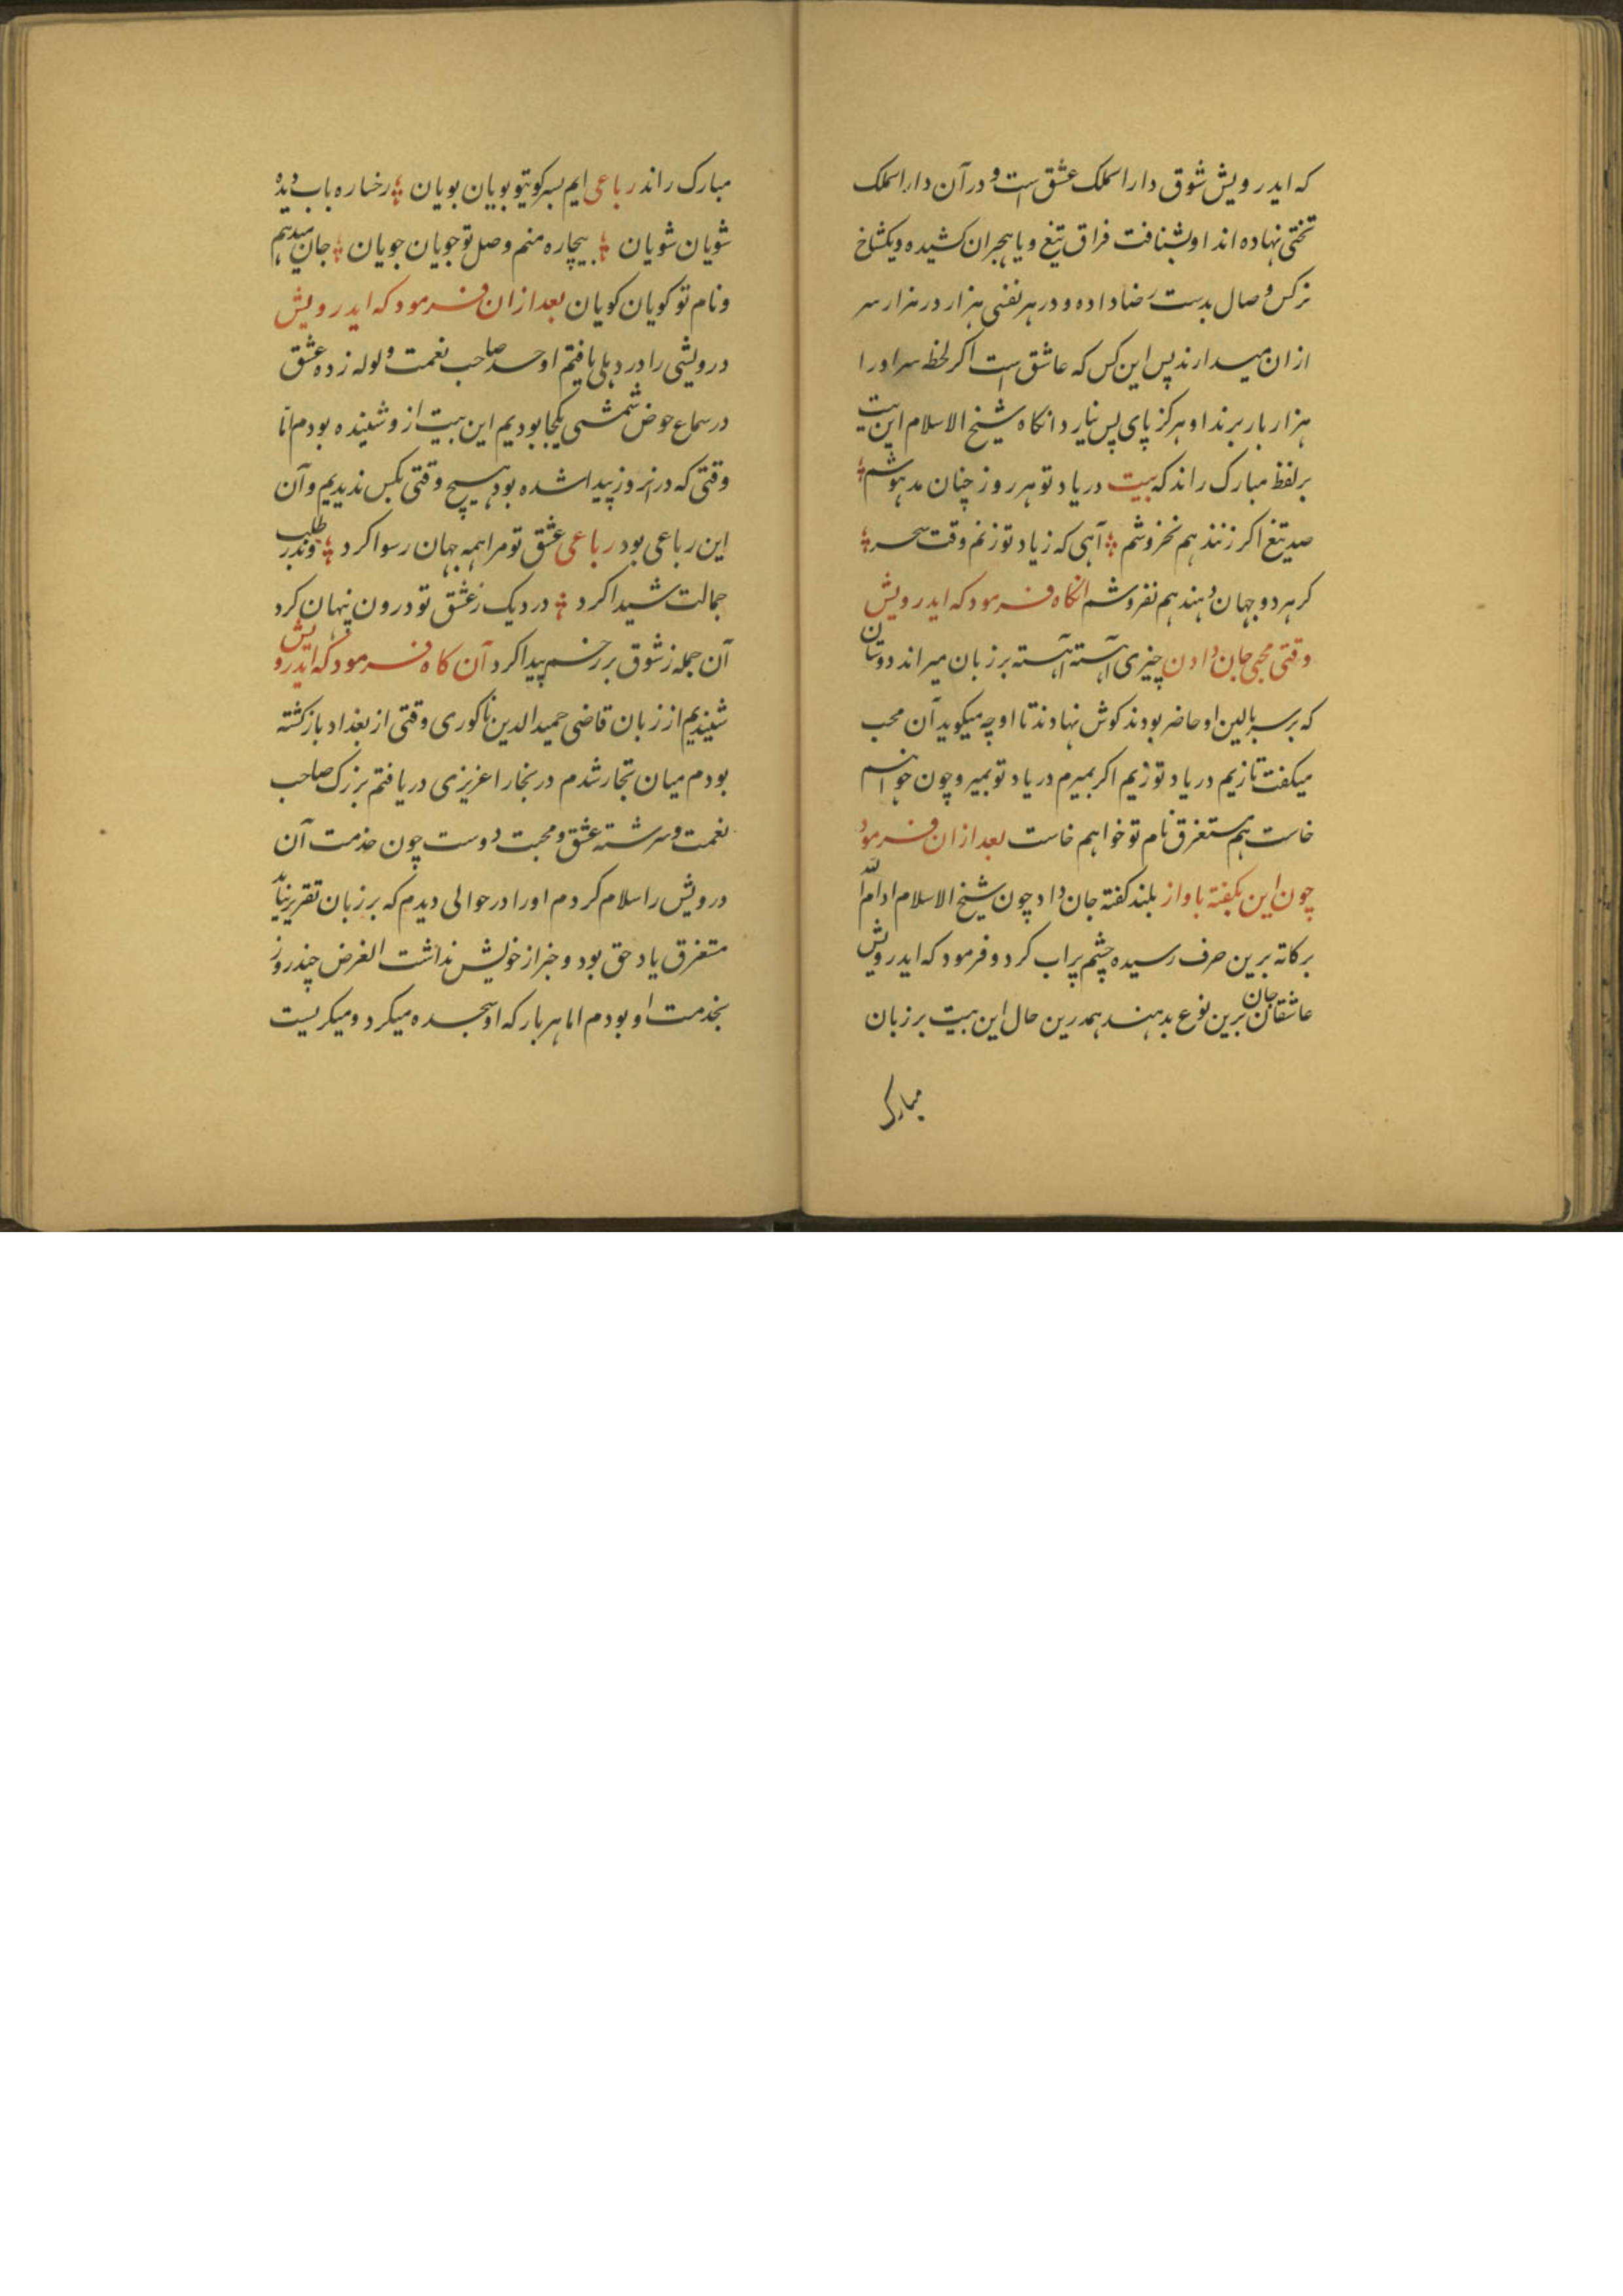 که ایدرویش شوق دارالملک عشق است و در آن دارالملک
تختی نهاده اند او بشنافت فراق تیغ و یا هجران کشیده و یکشاخ
نرکس وصال بدست رضا داده و در هر نفسی هزار در هزار سر
از ان میدارند پس این کس که عاشق است اکر لخظ سر اورا
هزار بار برند او هرکز پای پس نیارد انکاه شیخ الاسلام این بیت
بر لفظ مبارک راند که بیت در یاد تو هر روز چنان مدهوشم
صد تیغ اکر زنند هم نخروشم آهی که زیاد تو زنم وقت سحر
کر هر دو جهان دهند هم نفروشم انکاه فرمود که ایدرویش
وقتی محبی جان دادن چیزی آهسته آهسته بر زبان میراند دوستان
که بر سر بالین او حاضر بودند کوش نهادند تا او چه میکوید آن محب
میکفت تا زیم در یاد تو زیم اکر بمیرم در یاد تو بمیر و چون خواهم
خاست هم مستغرق نام تو خواهم خاست بعد ازان فرمود
چون این بکفته باواز بلند کفته جان داد چون شیخ الاسلام ادام الله
برکاته برین حرف رسیده چشم پراب کرد و فرمود که ایدرویش
عاشقان جان برین نوع بدهند همدرین حال این بیت بر زبان
مبارک
مبارک راند رباعی ایم بسر کویتو بویان بویان رخساره باب دیده
شویان شویان بیچاره منم وصل تو جویان جویان جان میدهم
و نام تو کویان کویان بعد ازان فرمود که ایدرویش
درویشی را در دهلی یافتم اوحد صاحب نعمت و لوله زده عشق
در سماع حوض شمسی یکجا بودیم این بیت از و شنیده بودم اما
وقتی که در انروز پیدا شده بود هیچ وقتی بکس ندیدیم و آن
این رباعی بود رباعی عشق تو مرا همه جهان رسوا کرد وندر طلب
جمالت شیدا کرد دردیک زعشق تو درون پنهان کرد
آن جمله زشوق بر رخسم پیدا کرد آن کاه فرمود که ایدرویش
شنیدیم از زبان قاضی حمید الدین ناکوری وقتی از بغداد بازکشته
بودم میان تجار شدم در بخارا عزیزی دریافتم بزرک صاحب
نعمت و سرشته عشق و محبت دوست چون خدمت آن
درویش را سلام کردم اورا در حوالی دیدم که بر زبان تقریر نیاید
متغرق یاد حق بود و خبر از خویش نداشت الغرض چند روز
بخدمت او بودم اما هر بار که او سجده میکرد و میکریست